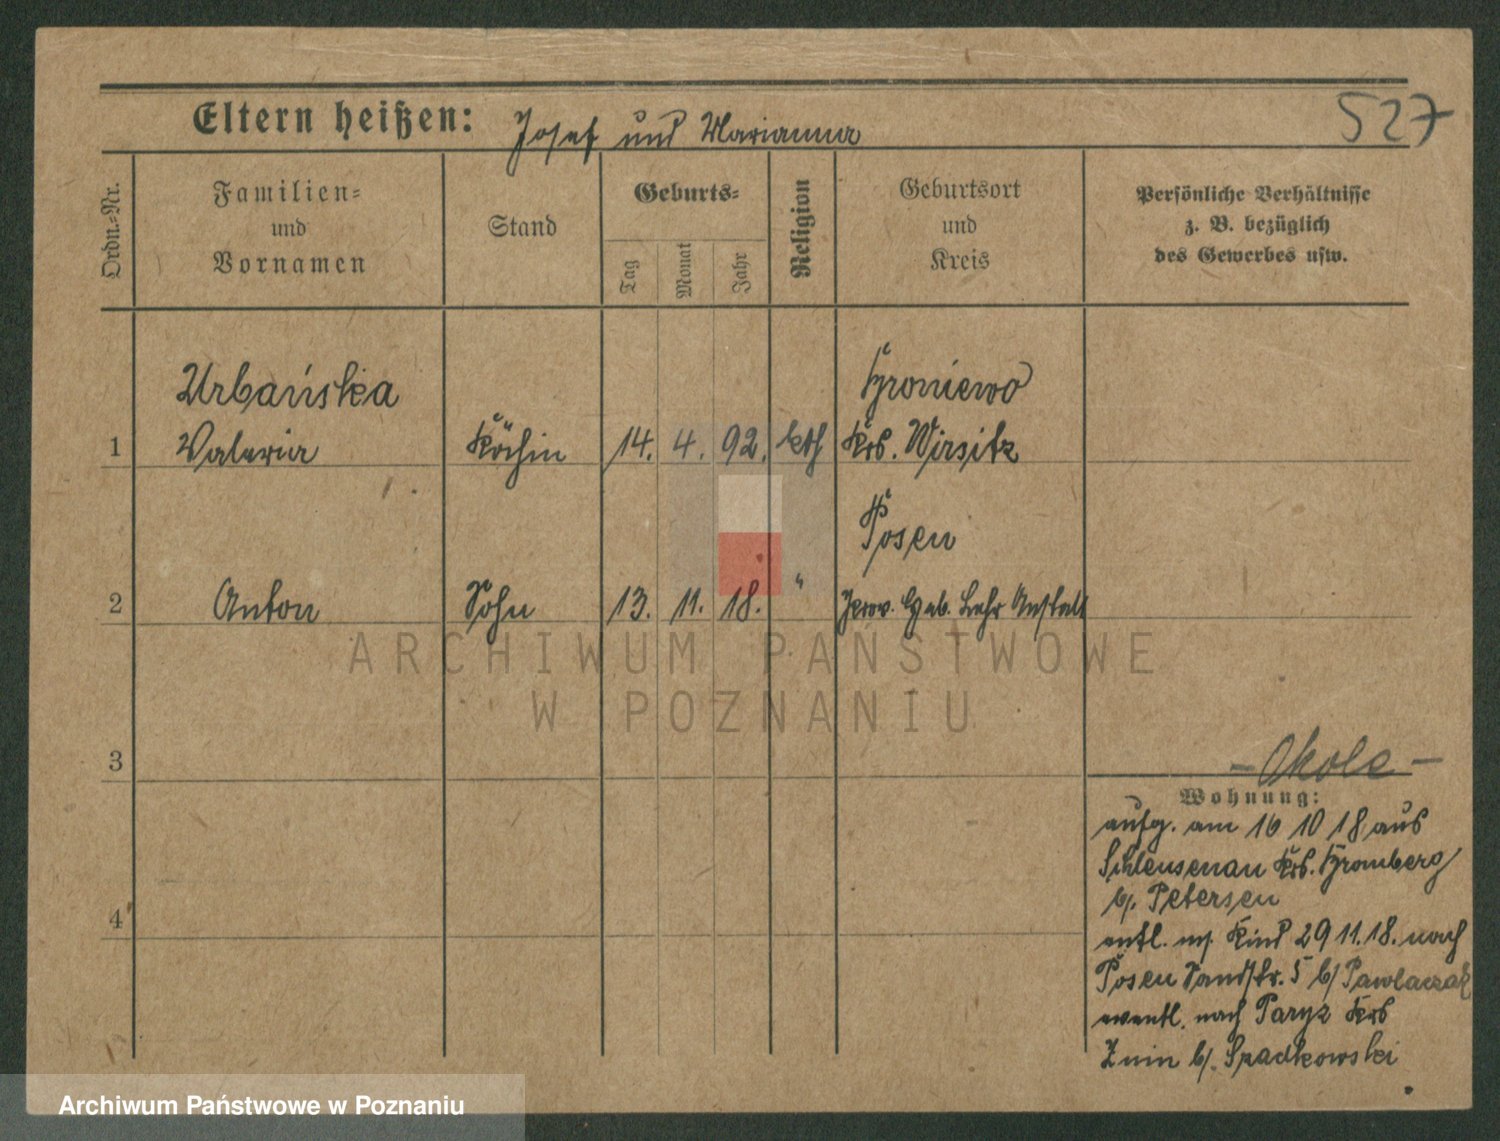 Eltern heißen: Josef und Marianna
527
Ordn.-Nr.
Familien-
und
Vornamen
Stand
Geburts-
Tag
Monat
Jahr
Religion
Geburtsort
und
Kreis
Persönliche Verhältnisse
z. B. bezüglich
des Gewerbes usw.
Urbańska
Broniewo
1 Valeria Köchin 14. 4. 92. kth Krs. Wirsitz
Posen
2 Anton Sohn 13. 11. 18. " Prov. Heb. Lehr Anstalt
ARCHIWUM PAŃSTWOWE
W POZNANIU
3
- Okole -
Wohnung:
aufg. am 16 10 18 aus
Schleusenau Krs. Bromberg
b/. Petersen
4
entl. m/. Kind 29 11.18. nach
Posen Sandstr. 5 b/ Pawlaczak
eventl. nach Paryz Krs
Znin b/. Szadkowski
Archiwum Państwowe w Poznaniu